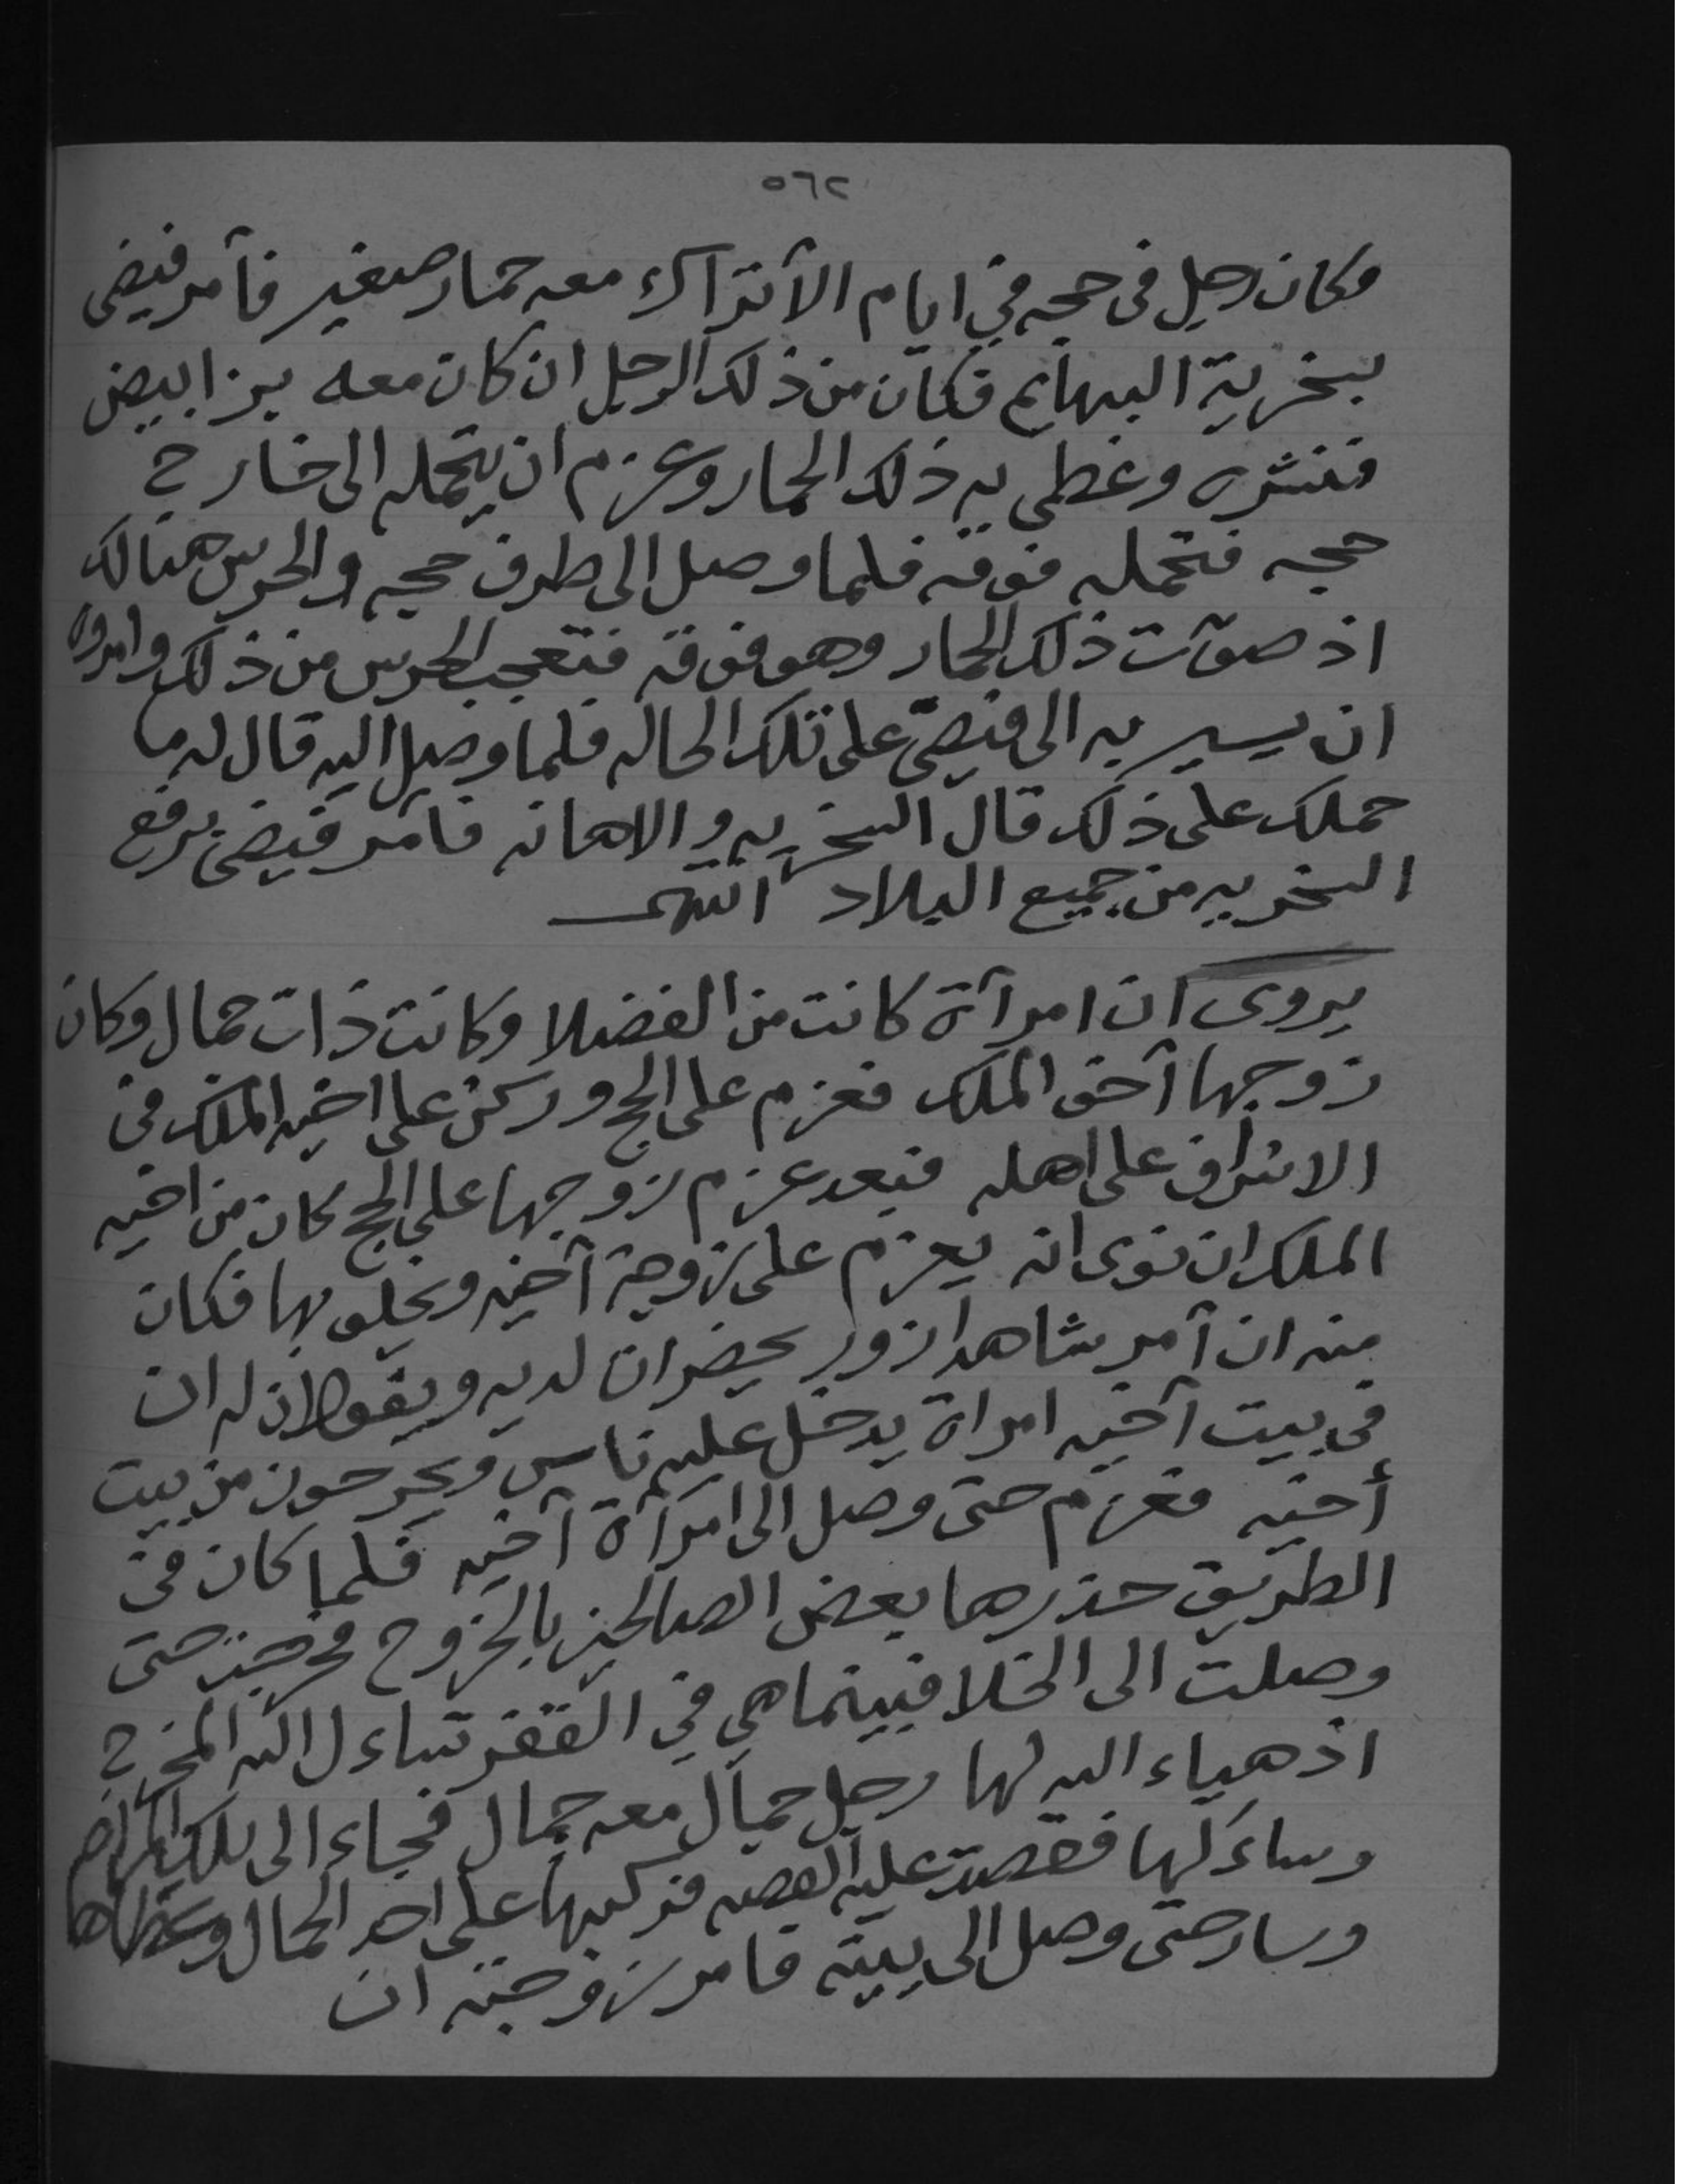 ٥٦٢
وكان رجل في حجه في ايام الأتراك معه حمار صغير فأمر فيضي
بسخرية البهايم فكان من ذلك الرجل ان كان معه بز ابيض
فنشره وغطى به ذلك الحمار وعزم ان يتحمله الى خارج
حجه فتحمله فوقه فلما وصل الى طرف حجه والحرس هنالك
اذ صوّت ذلك الحمار وهو فوقه فتعجب الحرس من ذلك وامروه
ان يسير به الى فيضي على تلك الحاله فلما وصل اليه قال له ما
حملك على ذلك قال السخريه والاهانه فأمر فيضي برفع
السخريه من جميع البلاد انتهى
يروى ان امرأة كانت من الفضلا وكانت ذات جمال وكان
زوجها آخو الملك فعزم على الحج وركن على اخيه الملك في
الاشراف على اهله فبعد عزم زوجها على الحج كان من اخيه
الملك ان نوى انه يعزم على زوجة آخيه ويخلو بها فكان
منه ان آمر شاهدا زور يحضران لديه ويقولان له ان
في بيت آخيه امراة يدخل عليه ناس ويخرجون من بيت
أخيه فعزم حتى وصل الى امرأة آخيه فلما كان في
الطريق حذرها بعض الصالحين بالخروج فخرجت حتى
وصلت الى الخلا فبينما هي في القفر تساءل الله المخرج
اذ هياء الله لها رجل جمال معه جمال فجاء الى تلك المراه
وساءلها فقصت عليه القصه فركبها على احد الجمال وغطاها
وسار حتى وصل الى بيته فامر زوجته ان